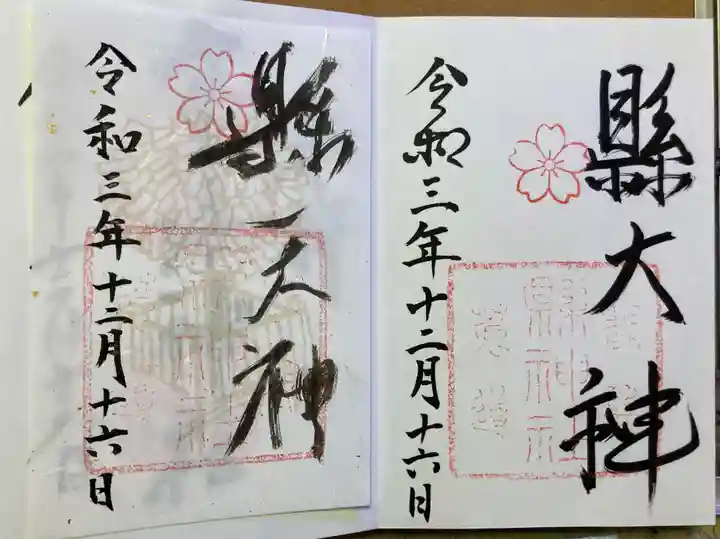 縣大神
令和三年十二月十六日
縣大神
令和三年十二月十六日